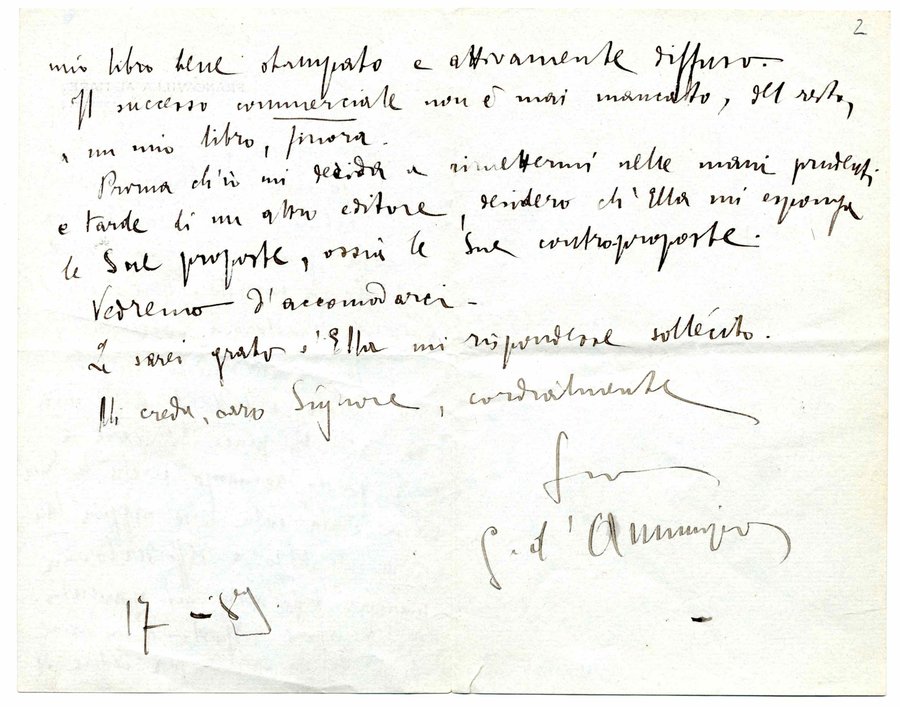 2
mio libro bene stampato e attivamente diffuso.
Il successo commerciale non è mai mancato, del resto,
a un mio libro, finora.
Prima ch'io mi decida a rimettermi nelle mani prudenti
e tarde di un altro editore, desidero ch'Ella mi esponga
le Sue proposte, ossia le Sue controproposte.
Vedremo d'accomodarci -
Le sarei grato s'Ella mi rispondesse sollecito.
Mi creda, caro Signore, cordialmente
Suo
G. d'Annunzio
17 -